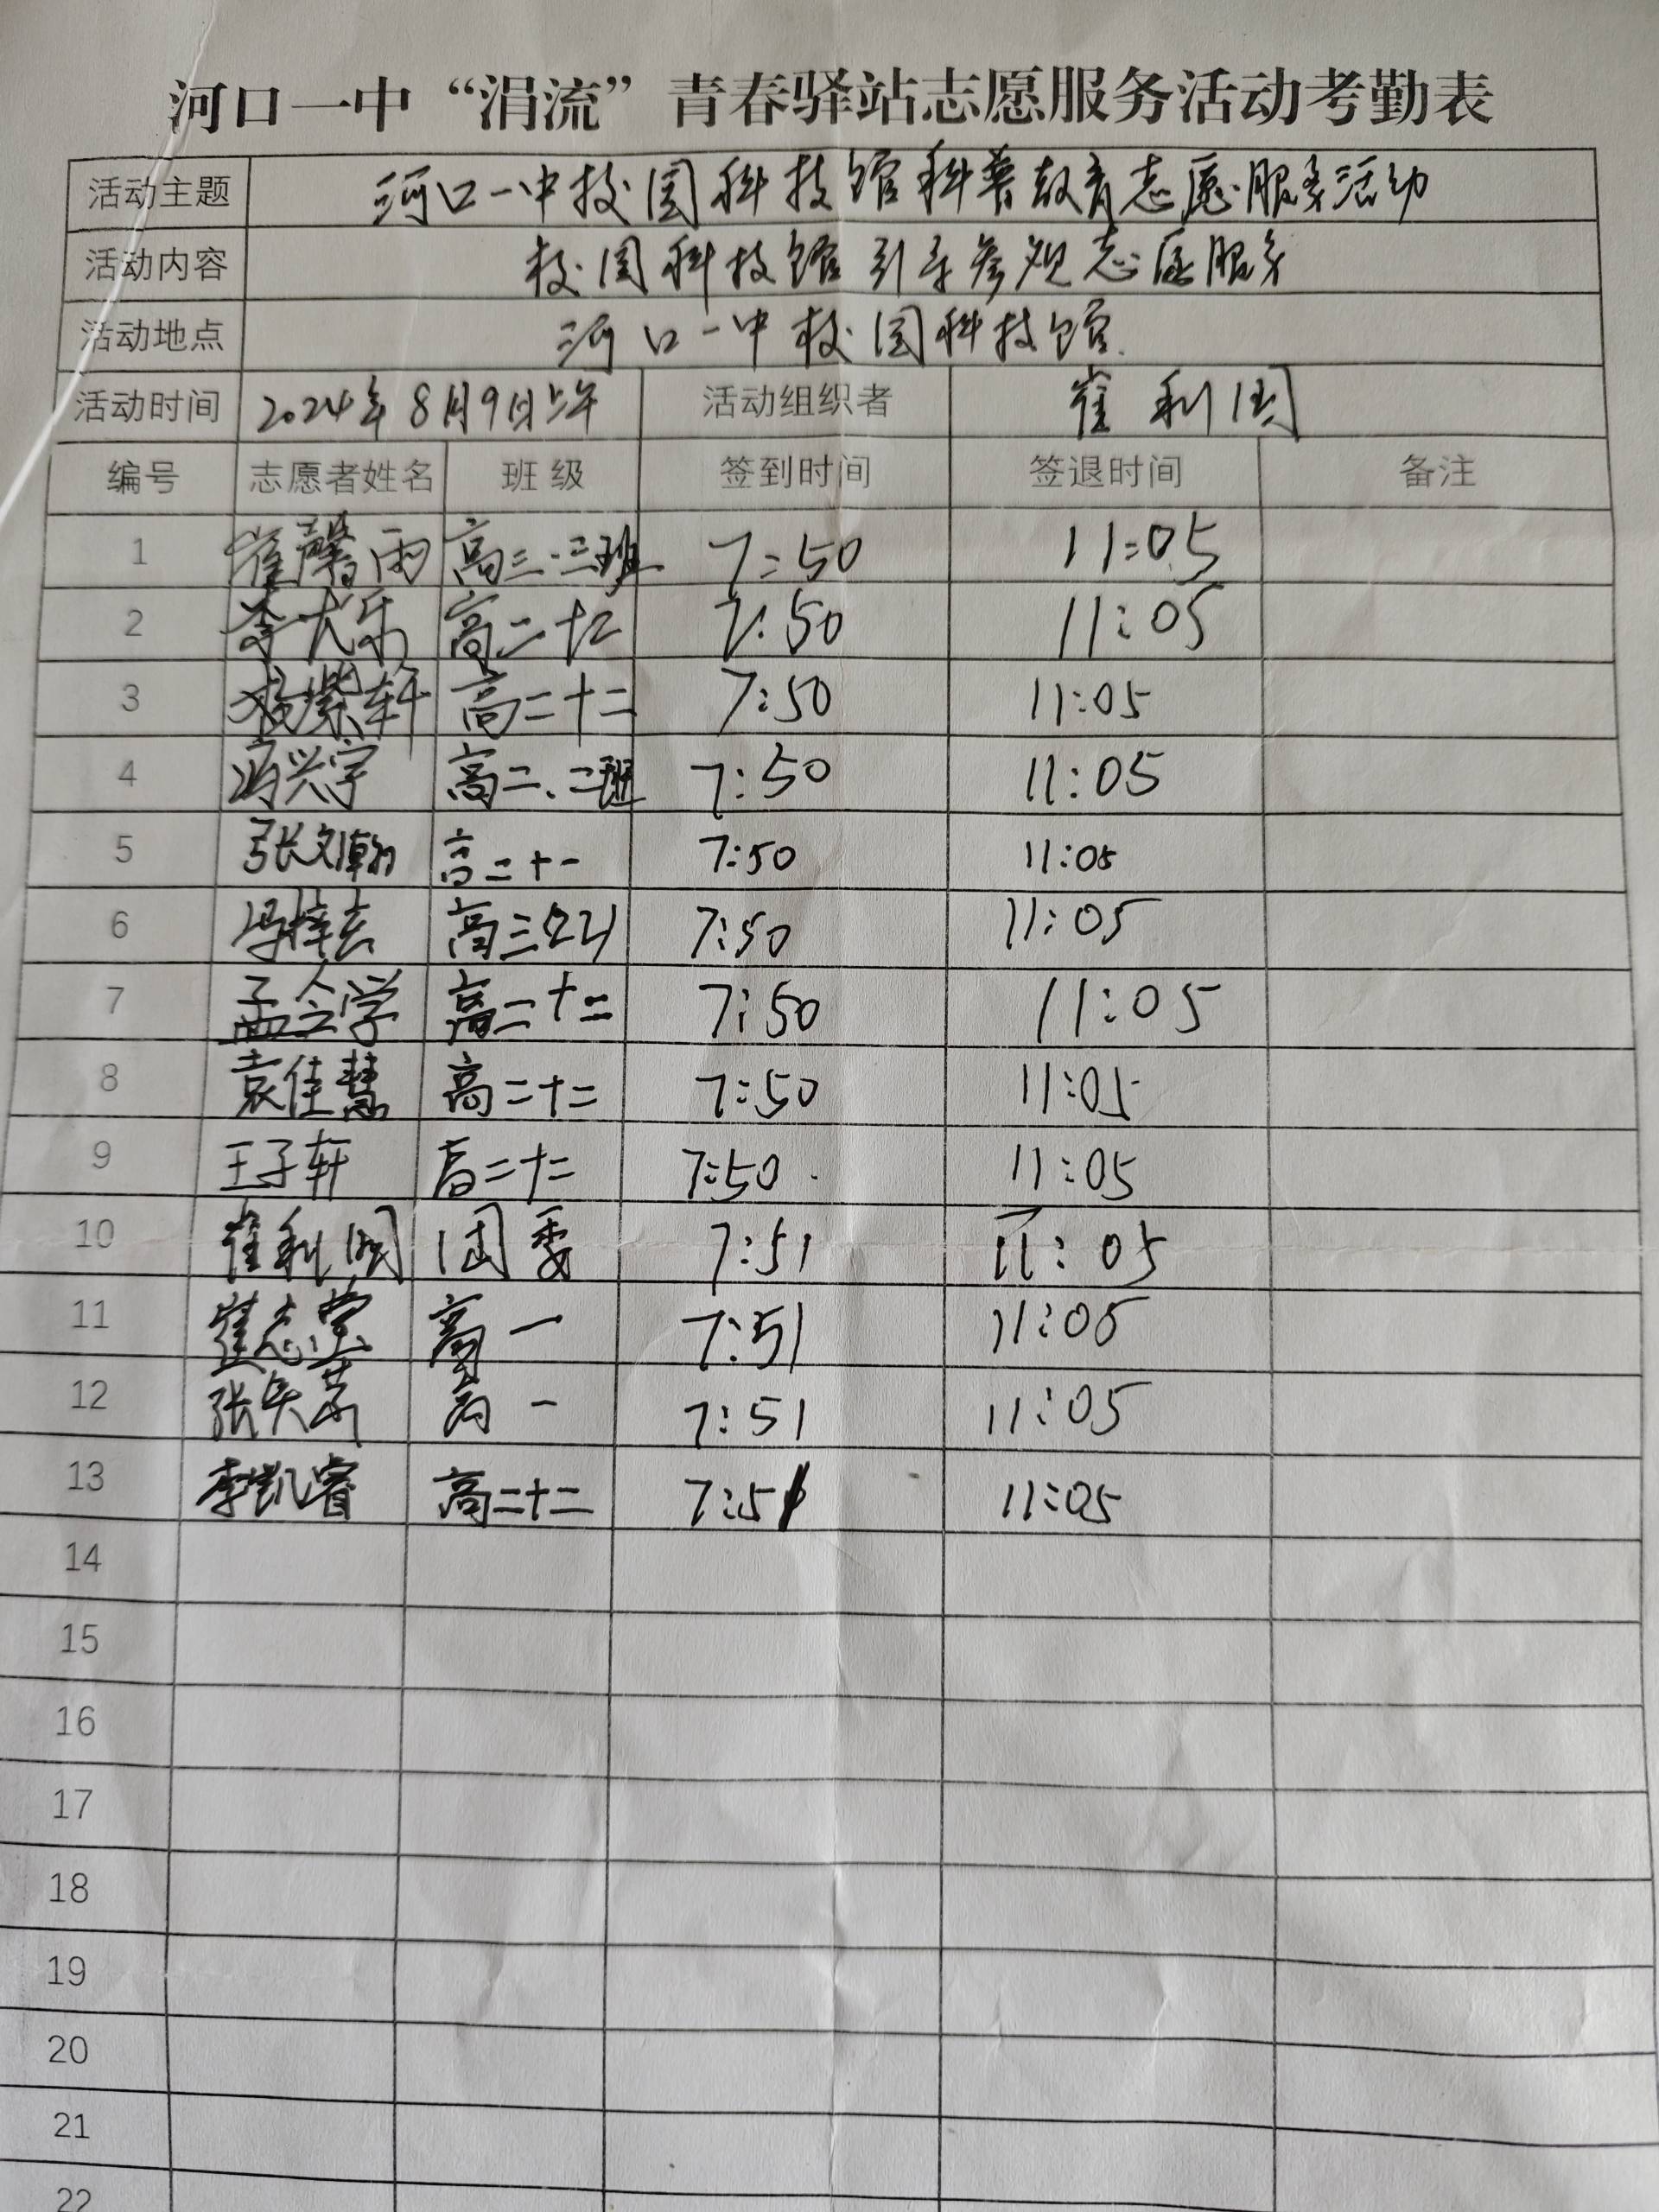 河口一中“涓流”青春驿站志愿服务活动考勤表
活动主题 河口一中校园科技馆科普教育志愿服务活动
活动内容 校园科技馆引导参观志愿服务
活动地点 河口一中校园科技馆
活动时间 2024年8月9日上午 活动组织者 崔利国
编号 志愿者姓名 班级 签到时间 签退时间 备注
1 崔馨雨 高三.三班 7:50 11:05
2 李 乐 高二十二 7:50 11:05
3 杨紫轩 高二十二 7:50 11:05
4 冯兴宇 高二、二班 7:50 11:05
5 张文瀚 高二十一 7:50 11:05
6 冯梓 高三 7:50 11:05
7 孟令学 高二十二 7:50 11:05
8 袁佳慧 高二十二 7:50 11:05
9 王子轩 高二十二 7:50 11:05
10 崔利国 团委 7:51 11:05
11 崔志堂 高一 7:51 11:05
12 张 高一 7:51 11:05
13 李凯睿 高二十二 7:51 11:05
14
15
16
17
18
19
20
21
22